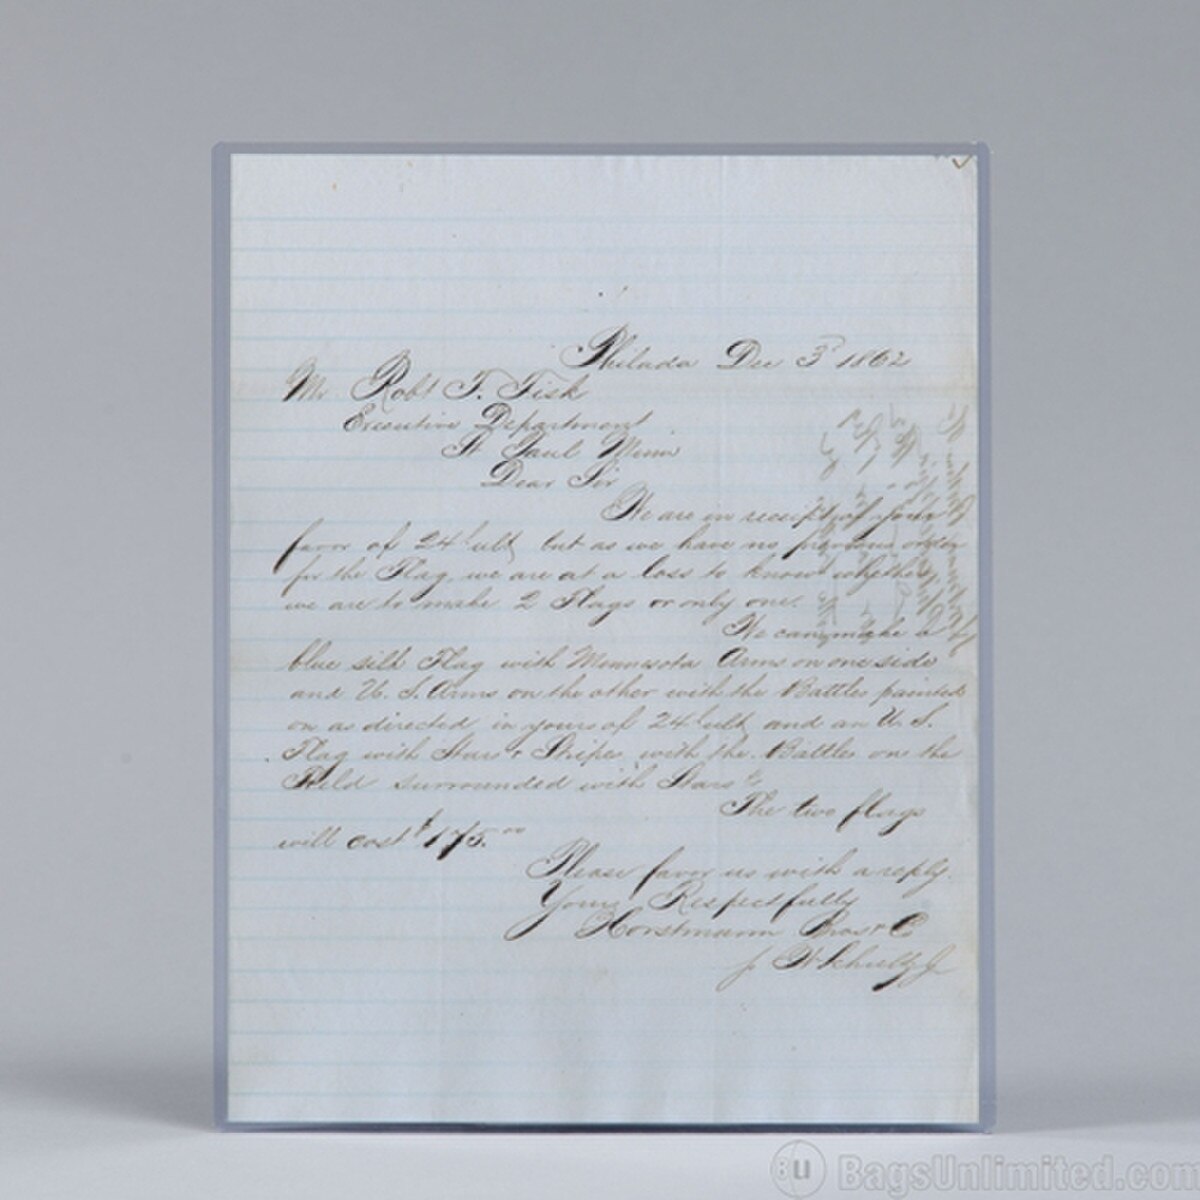 Philada Dec 3d 1862
Mr Robt F. Fisk
Executive Department
St Paul Minn
Dear Sir
We are in receipt of your
favor of 24th ult but as we have no previous order
for the Flag, we are at a loss to know whether
we are to make 2 Flags or only one.
We can make a
blue silk Flag with Minnesota Arms on one side
and U. S. Arms on the other with the Battles painted
on as directed in yours of 24th ult and an U. S.
Flag with Stars & Stripes with the Battles on the
Field surrounded with Stars
The two flags
will cost $175.00
Please favor us with a reply.
Yours Respectfully
Horstmann Bros & Co
BU BagsUnlimited.com